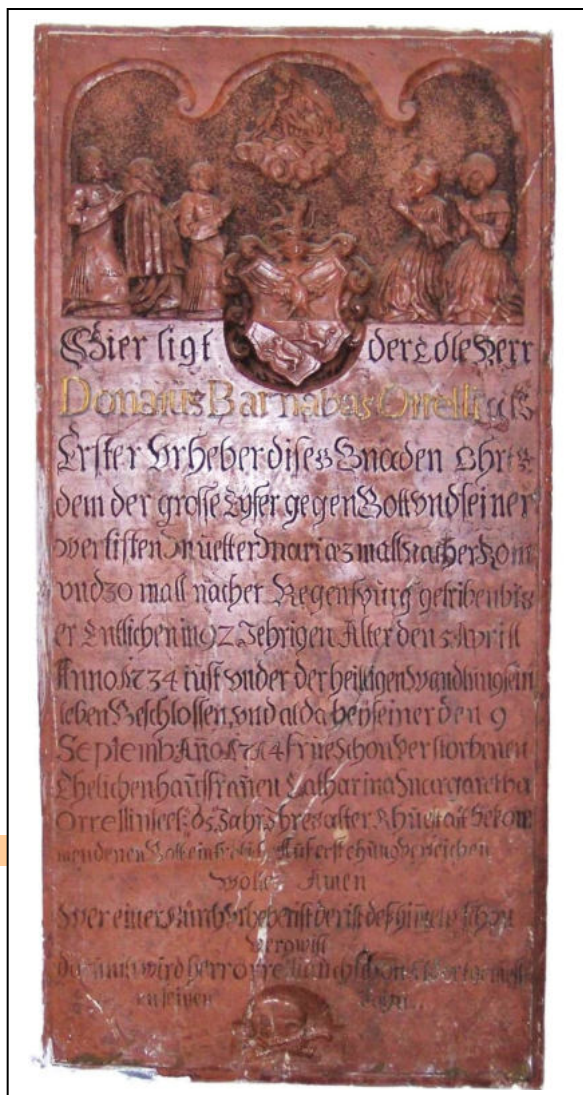 Hier ligt der Edle Herr
Donatus Barnabas Orrelli
Erster Vrheber dises Gnaden Ohrts
dem der grosse Eyfer gegen Gott vnd seiner
wertisten Muetter Maria 3 mall nacher Rom
vnd 30 mall nacher Regenspurg getriben bis
er Entlichen in 92 Jehrigen Alter den 5 Aprill
Anno 1734 iust vnder der heiligen Wandlung sein
leben Beschlossen, vnd alda bey seiner den 9
Septemb Año 1714 frue schon Verstorbenen
Ehelichen hausfrauen Catharina Margaretha
Orrellin seel: 65 Jahr Ihres alter
Gott ein Auferstehung verleichen
wolle Amen
Wer einer Kürch Vrheber ist der ist deß himels schon
vergwist
wird Herr